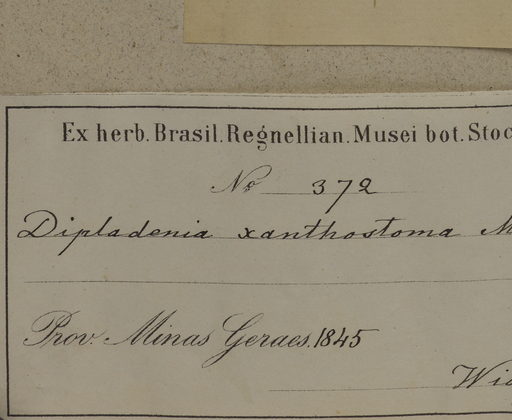 Ex herb. Brasil. Regnellian. Musei bot.
No 372
Dipladenia xanthostoma
Prov. Minas Geraes. 1845